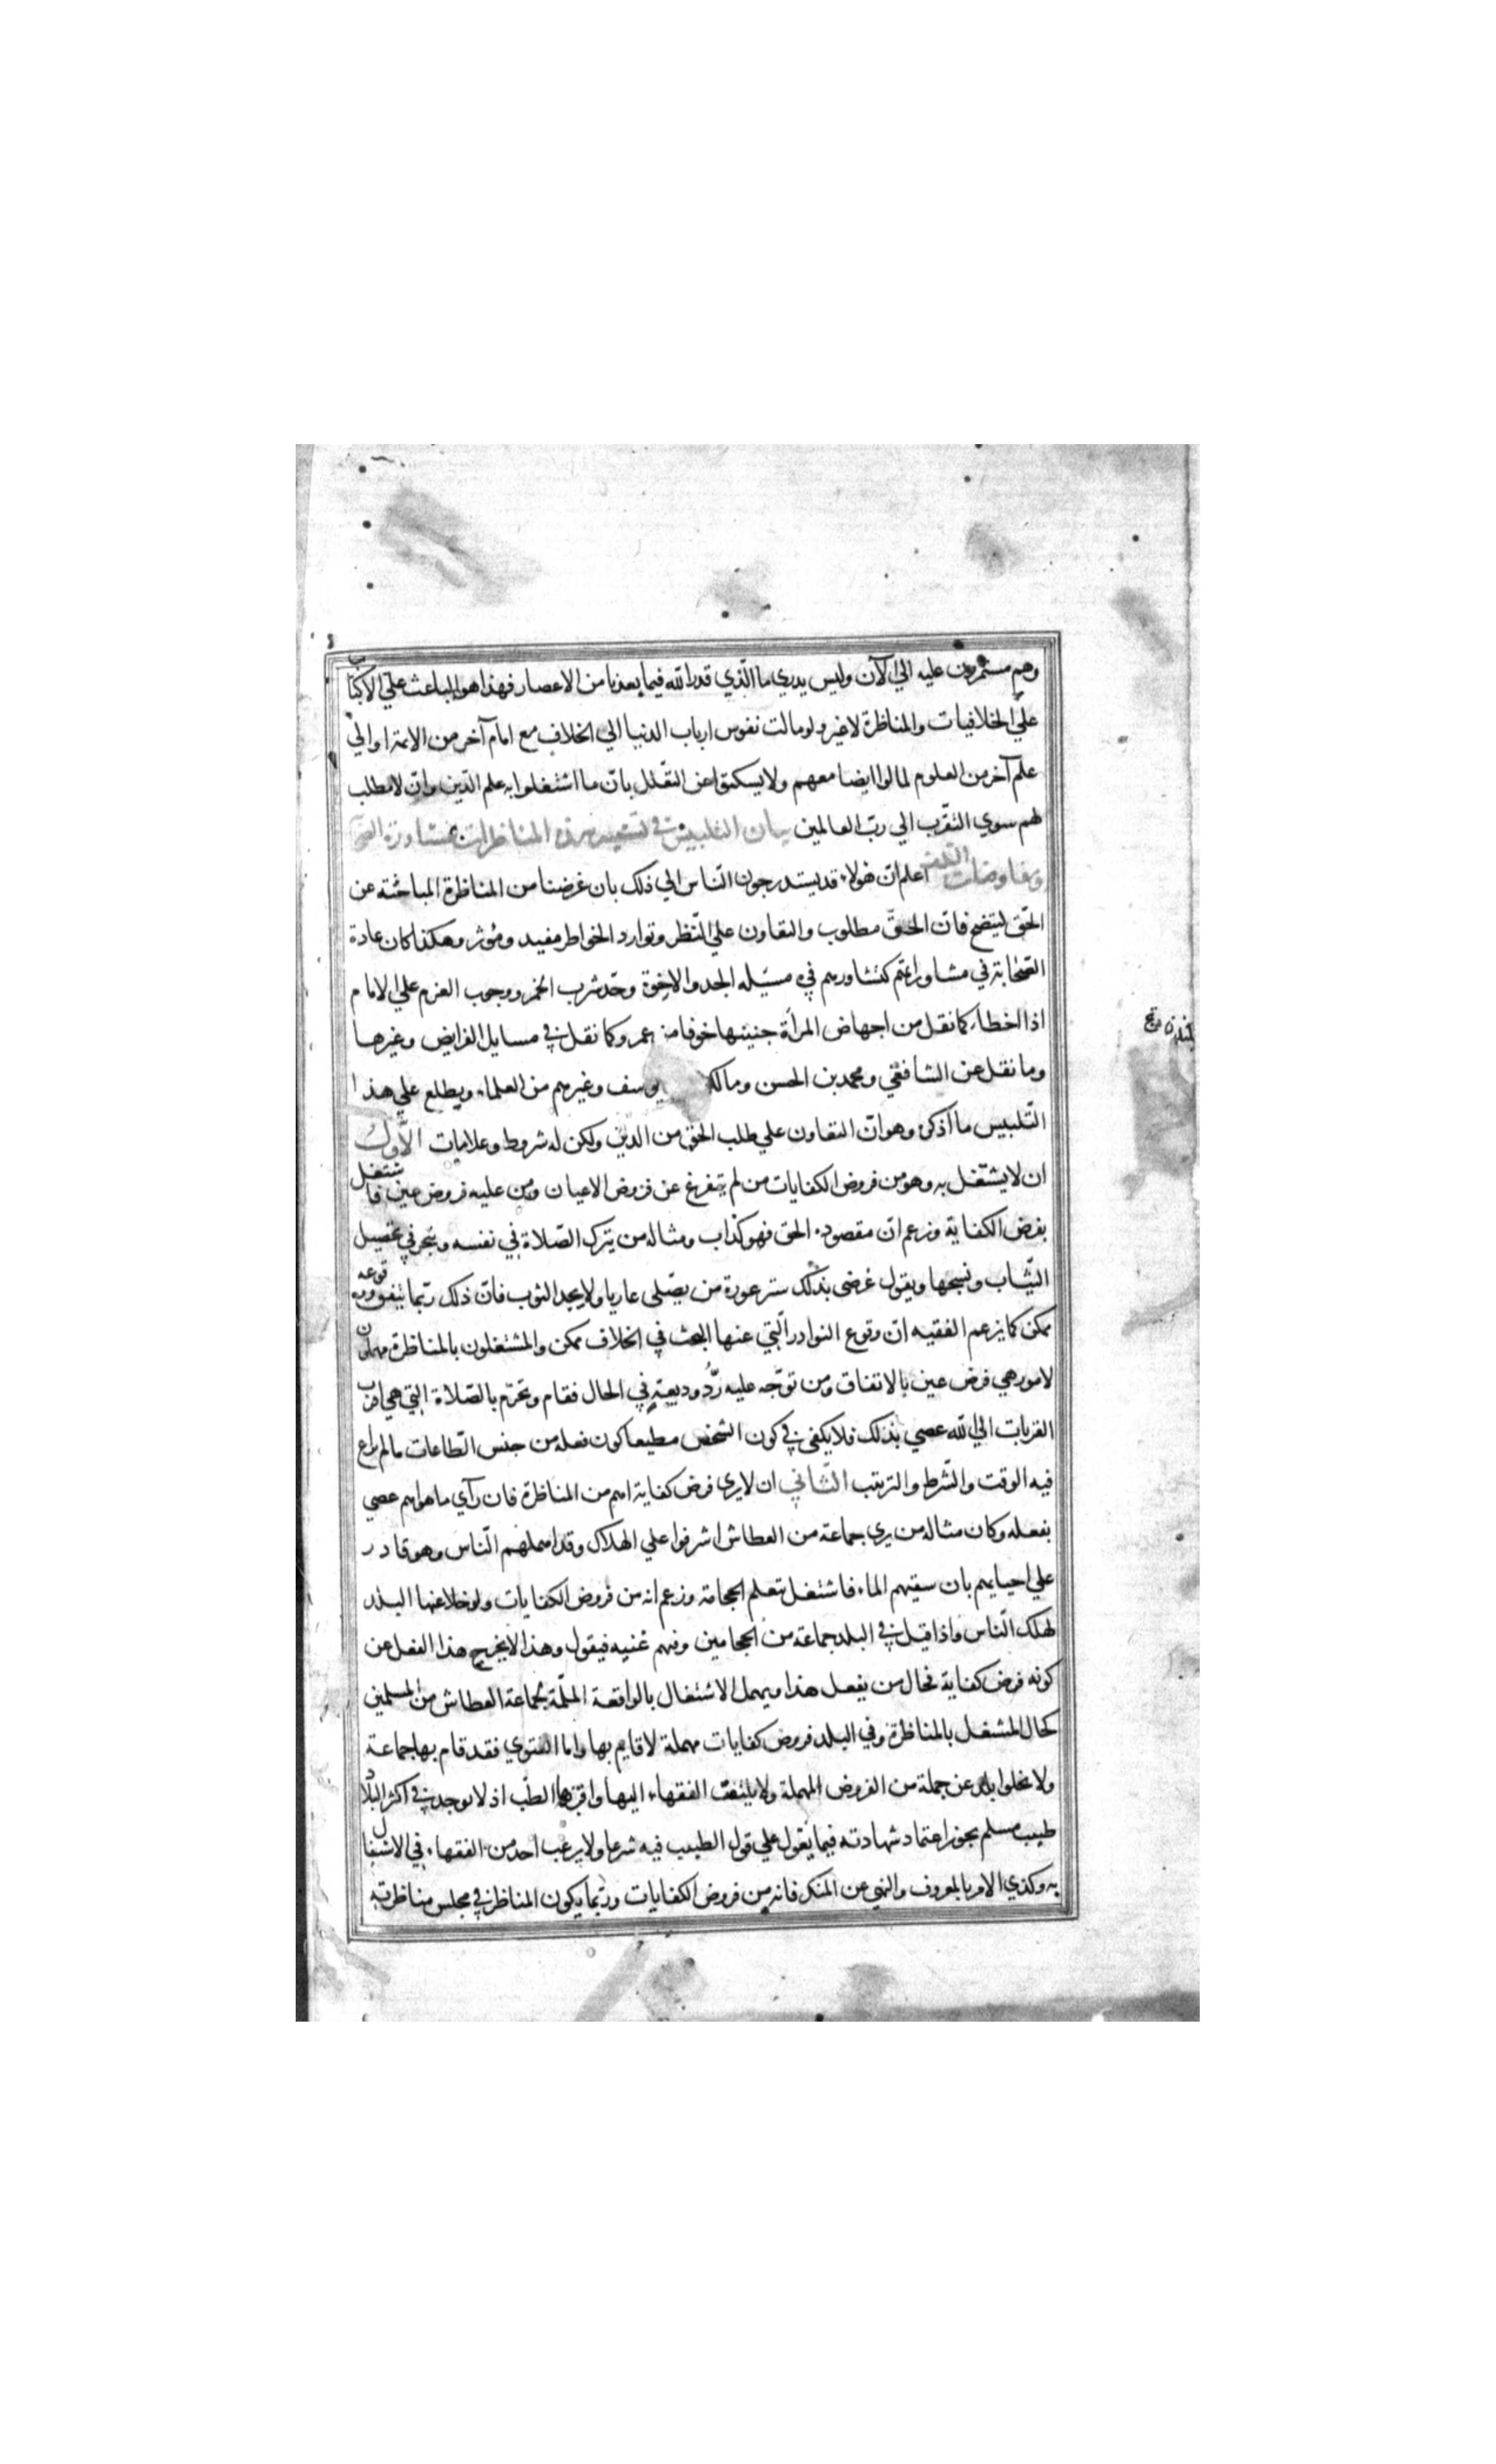 وهم مستمرون عليه الي الآن وليس يدري ما الّذي قدر الله فيما بعدنا من الاعصار فهذا هو الباعث علي الاكباب
علي الخلافيات والمناظرة لاغير ولو مالت نفوس ارباب الدنيا الي الخلاف مع امام آخر من الائمة او الي
علم آخر من العلوم لمالوا ايضا معهم ولا يسكتوا عن التعلل بانّ ما اشتغلوا به علم الدّين وان لا مطلب
لهم سوي التقرّب الي ربّ العالمين بيان التلبيس في تشبيه هذه المناظرات بمشاورة الصحابة
ومفاوضات السلف اعلم انّ هولاء قد يستدرجون النّاس الي ذلك بان غرضنا من المناظرة المباحثة عن
الحّق ليتضح فانّ الحقّ مطلوب والتعاون علي النّظر وتوارد الخواطر مفيد ومؤثر وهكذا كان عادة
الصّحابة في مشاوراتهم كتشاورهم في مسئله الجد والاخوة وحدّ شرب الخمر ووجوب الغرم علي الامام
اذا اخطاء كما نقل من اجهاض المرأة جنينها خوفا من عمر وكما نقل في مسايل الفرايض وغيرها
وما نقل عن الشافعي ومحمد بن الحسن ومالك يوسف وغيرهم من العلماء ويطلع علي هذا
التّلبيس ما اذكره وهو انّ التعاون علي طلب الحق من الدين ولكن له شروط وعلامات الأول
ان لا يشتغل به وهو من فروض الكفايات من لم يتفرغ عن فروض الاعيان ومن عليه فروض عين فاشتغل
بفرض الكفاية وزعم انّ مقصوده الحق فهو كذاب ومثاله من يترك الصّلاة في نفسه ويتجر في تحصيل
الثّياب ونسجها ويقول غرضي بذلك ستر عورة من يصّلي عاريا ولا يجد الثوب فانّ ذلك ربّما يتفق ووقوعه
ممكن كما يزعم الفقيه انّ وقوع النوادر الّتي عنها البحث في الخلاف ممكن والمشتغلون بالمناظرة مهملون
لامور هي فرض عين بالاتفاق ومن توجّه عليه ردُّ وديعة في الحال فقام وتحرّم بالصّلاة التي هي اقرب
القربات الي الله عصي بذلك فلا يكفي في كون الشخص مطيعا كون فعله من جنس الطّاعات ما لم يراع
فيه الوقت والشّرط والترتيب الثّاني ان لا يري فرض كفاية اهم من المناظرة فان رآي ما هو اهم عصي
بفعله وكان مثاله من يري جماعة من العطاش اشرفوا علي الهلاك وقد اهملهم النّاس وهو قادر
علي احيايهم بان سقيهم الماء فاشتغل بتعلم الحجامة وزعم انه من فروض الكفايات ولو خلا عنها البلد
لهلك النّاس واذا قيل في البلد جماعة من الحجامين وفيهم غنيه فيقول وهذا لا يخرج هذا الفعل عن
كونه فرض كفاية فحال من يفعل هذا ويهمل الاشتغال بالواقعة الملمّة بجماعة العطاش من المسلمين
كحال المشتغل بالمناظرة وفي البلد فروض كفايات مهملة لا قايم بها واما الفتوي فقد قام بها جماعة
ولا يخلوا بلد عن جملة من الفروض المهملة ولا يلتفت الفقهاء اليها واقربها الطبّ اذ لا يوجد في اكثر البلاد
طبيب مسلم يجوز اعتماد شهادته فيما يعّول علي قول الطبيب فيه شرعا ولا يرغب احد من الفقهاء في الاشتغال
به وكذي الامر بالمعروف والنهي عن المنكر فانه من فروض الكفايات وربّما يكون المناظر في مجلس مناظرته